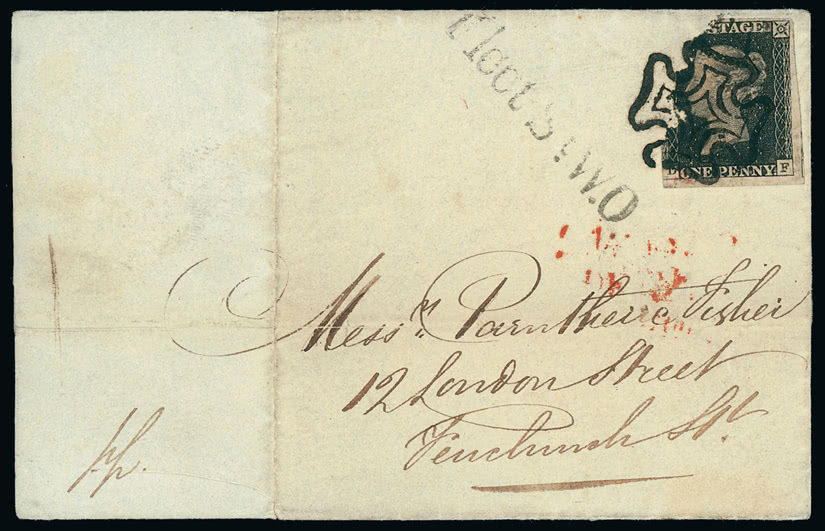 POSTAGE
ONE PENNY F
Fleet St W.O
Messrs. Parnther & Fisher
12 London Street
Fenchurch St.
pp.